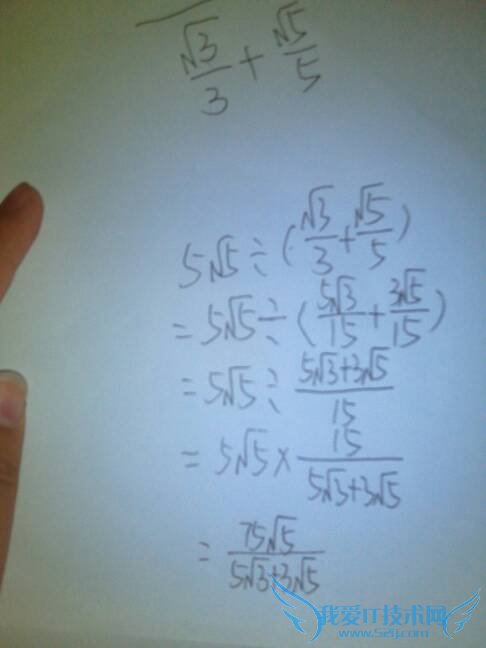 √3/3 + √5/5
5√5 ÷ (√3/3 + √5/5)
= 5√5 ÷ (5√3/15 + 3√5/15)
= 5√5 ÷ (5√3+3√5)/15
= 5√5 × 15/(5√3+3√5)
= 75√5/(5√3+3√5)
我爱IT技术网
www.52ij.com